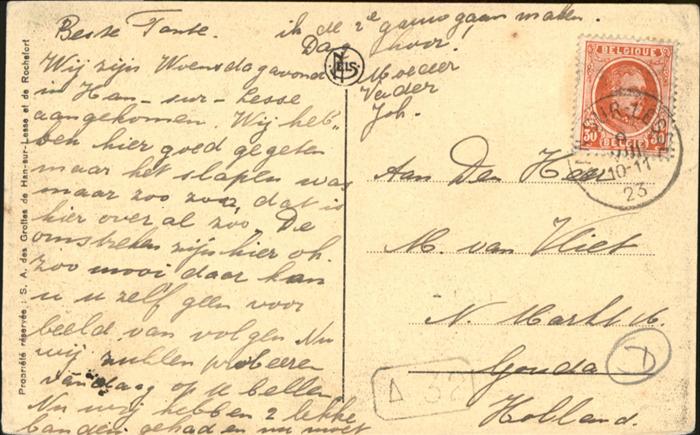 Beste Tante.
Wij zijn Woensdagavond
in Han-sur-Lesse
aangekomen. Wij heb-
ben hier goed gegeten
maar het slapen was
maar zoo zoo, dat is
hier over al zoo. De
omstreken zijn hier oh.
zoo mooi daar kan
u u zelf geen voor
beeld van volgen Nu
wij zullen probeeren
vandaag op te bellen
Nu wij hebben 2 lekke
banden gehad en nu moet
ik de 2e gaan maken.
Dag hoor.
Moeder
Vader
Joh.
NELS
BELGIQUE
30 30
BELGIË
10-11
23
Aan Den Heer
M. van Vliet
N. Markt
Gouda
Holland.
Propriété réservée : S. A. des Grottes de Han-sur-Lesse et de Rochefort